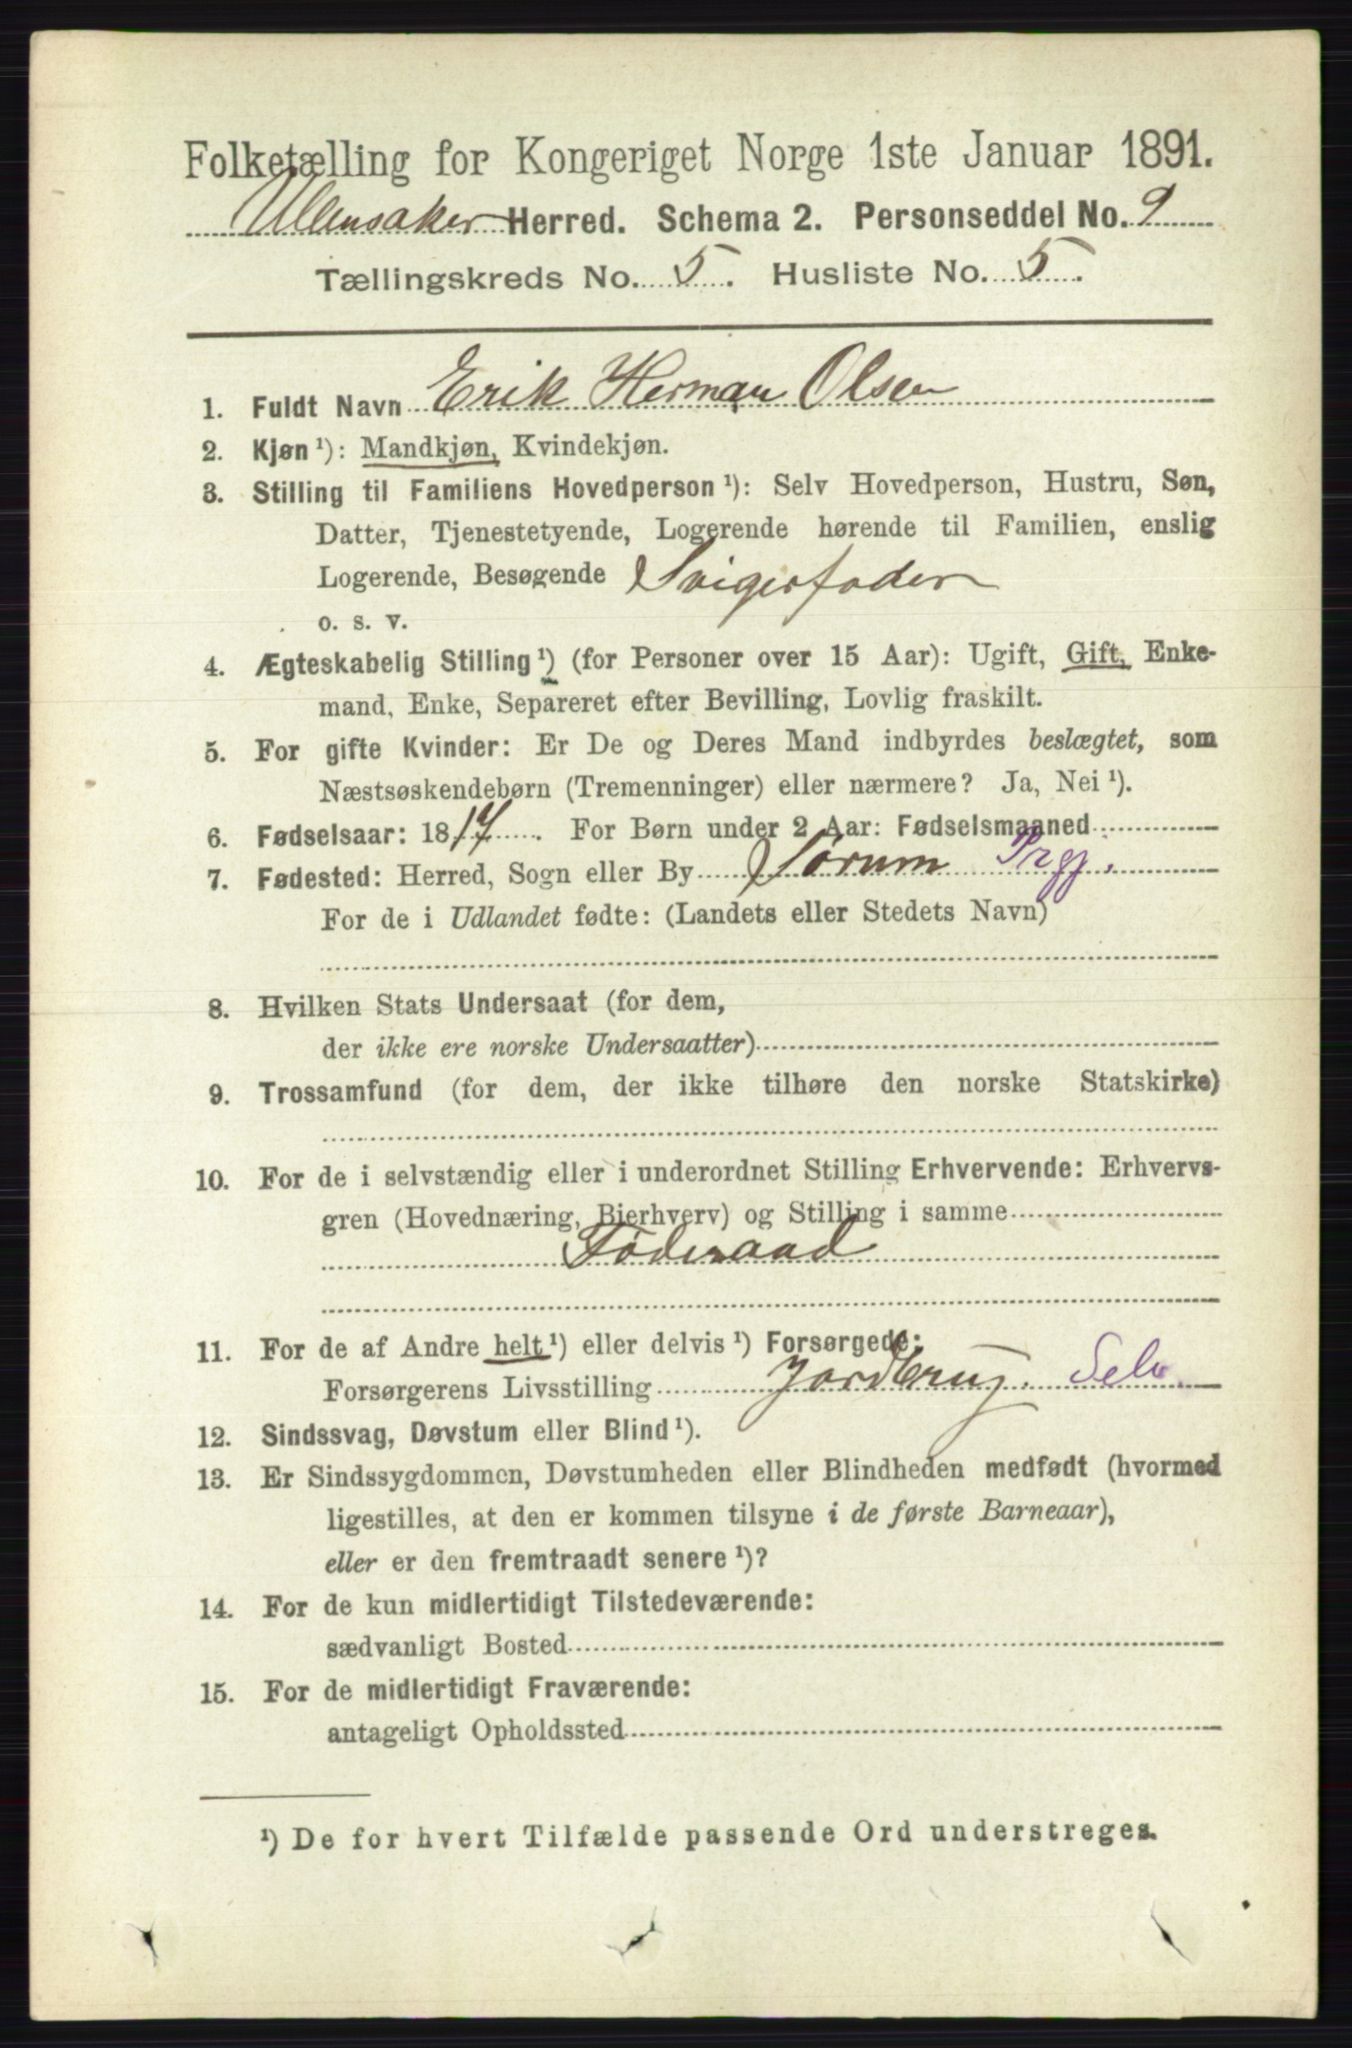 Folketælling for Kongeriget Norge 1ste Januar 1891.
Ullensaker Herred. Schema 2. Personseddel No. 9
Tællingskreds No. 5. Husliste No. 5.
1. Fuldt Navn Erik Herman Olsen
2. Kjøn ¹): Mandkjøn, Kvindekjøn.
3. Stilling til Familiens Hovedperson ¹): Selv Hovedperson, Hustru, Søn,
Datter, Tjenestetyende, Logerende hørende til Familien, enslig
Logerende, Besøgende Svigerfader
o. s. v.
4. Ægteskabelig Stilling ¹) (for Personer over 15 Aar): Ugift, Gift, Enke-
mand, Enke, Separeret efter Bevilling, Lovlig fraskilt.
5. For gifte Kvinder: Er De og Deres Mand indbyrdes beslægtet, som
Næstsøskendebørn (Tremenninger) eller nærmere? Ja, Nei ¹).
6. Fødselsaar: 1817. For Børn under 2 Aar: Fødselsmaaned
7. Fødested: Herred, Sogn eller By Sørum Prgj.
For de i Udlandet fødte: (Landets eller Stedets Navn)
8. Hvilken Stats Undersaat (for dem,
der ikke ere norske Undersaatter)
9. Trossamfund (for dem, der ikke tilhøre den norske Statskirke)
10. For de i selvstændig eller i underordnet Stilling Erhvervende: Erhvervs-
gren (Hovednæring, Bierhverv) og Stilling i samme
Føderaad
11. For de af Andre helt ¹) eller delvis ¹) Forsørgede:
Forsørgerens Livsstilling Jordbrug. Selv
12. Sindssvag, Døvstum eller Blind ¹).
13. Er Sindssygdommen, Døvstumheden eller Blindheden medfødt (hvormed
ligestilles, at den er kommen tilsyne i de første Barneaar),
eller er den fremtraadt senere ¹)?
14. For de kun midlertidigt Tilstedeværende:
sædvanligt Bosted
15. For de midlertidigt Fraværende:
antageligt Opholdssted
¹) De for hvert Tilfælde passende Ord understreges.